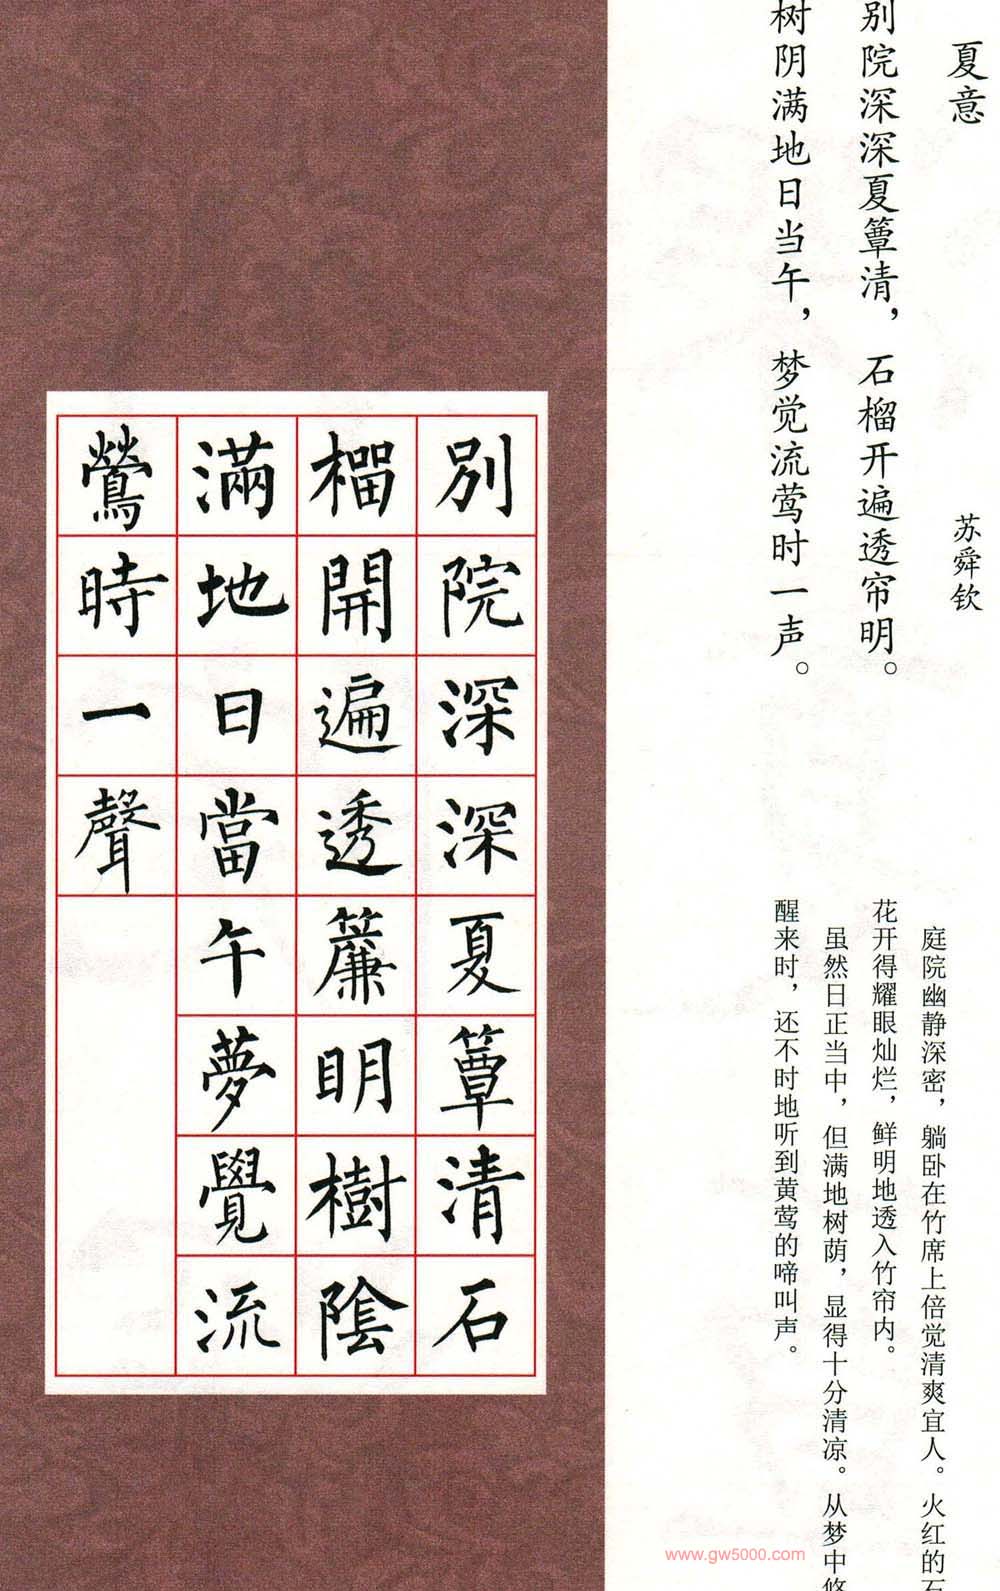 夏意
苏舜钦
别院深深夏簟清，石榴开遍透帘明。
树阴满地日当午，梦觉流莺时一声。
庭院幽静深密，躺卧在竹席上倍觉清爽宜人。火红的石
花开得耀眼灿烂，鲜明地透入竹帘内。
虽然日正当中，但满地树荫，显得十分清凉。从梦中悠
醒来时，还不时地听到黄莺的啼叫声。
別院深深夏簟清石
榴開遍透簾明樹陰
滿地日當午夢覺流
鶯時一聲
www.gw5000.com